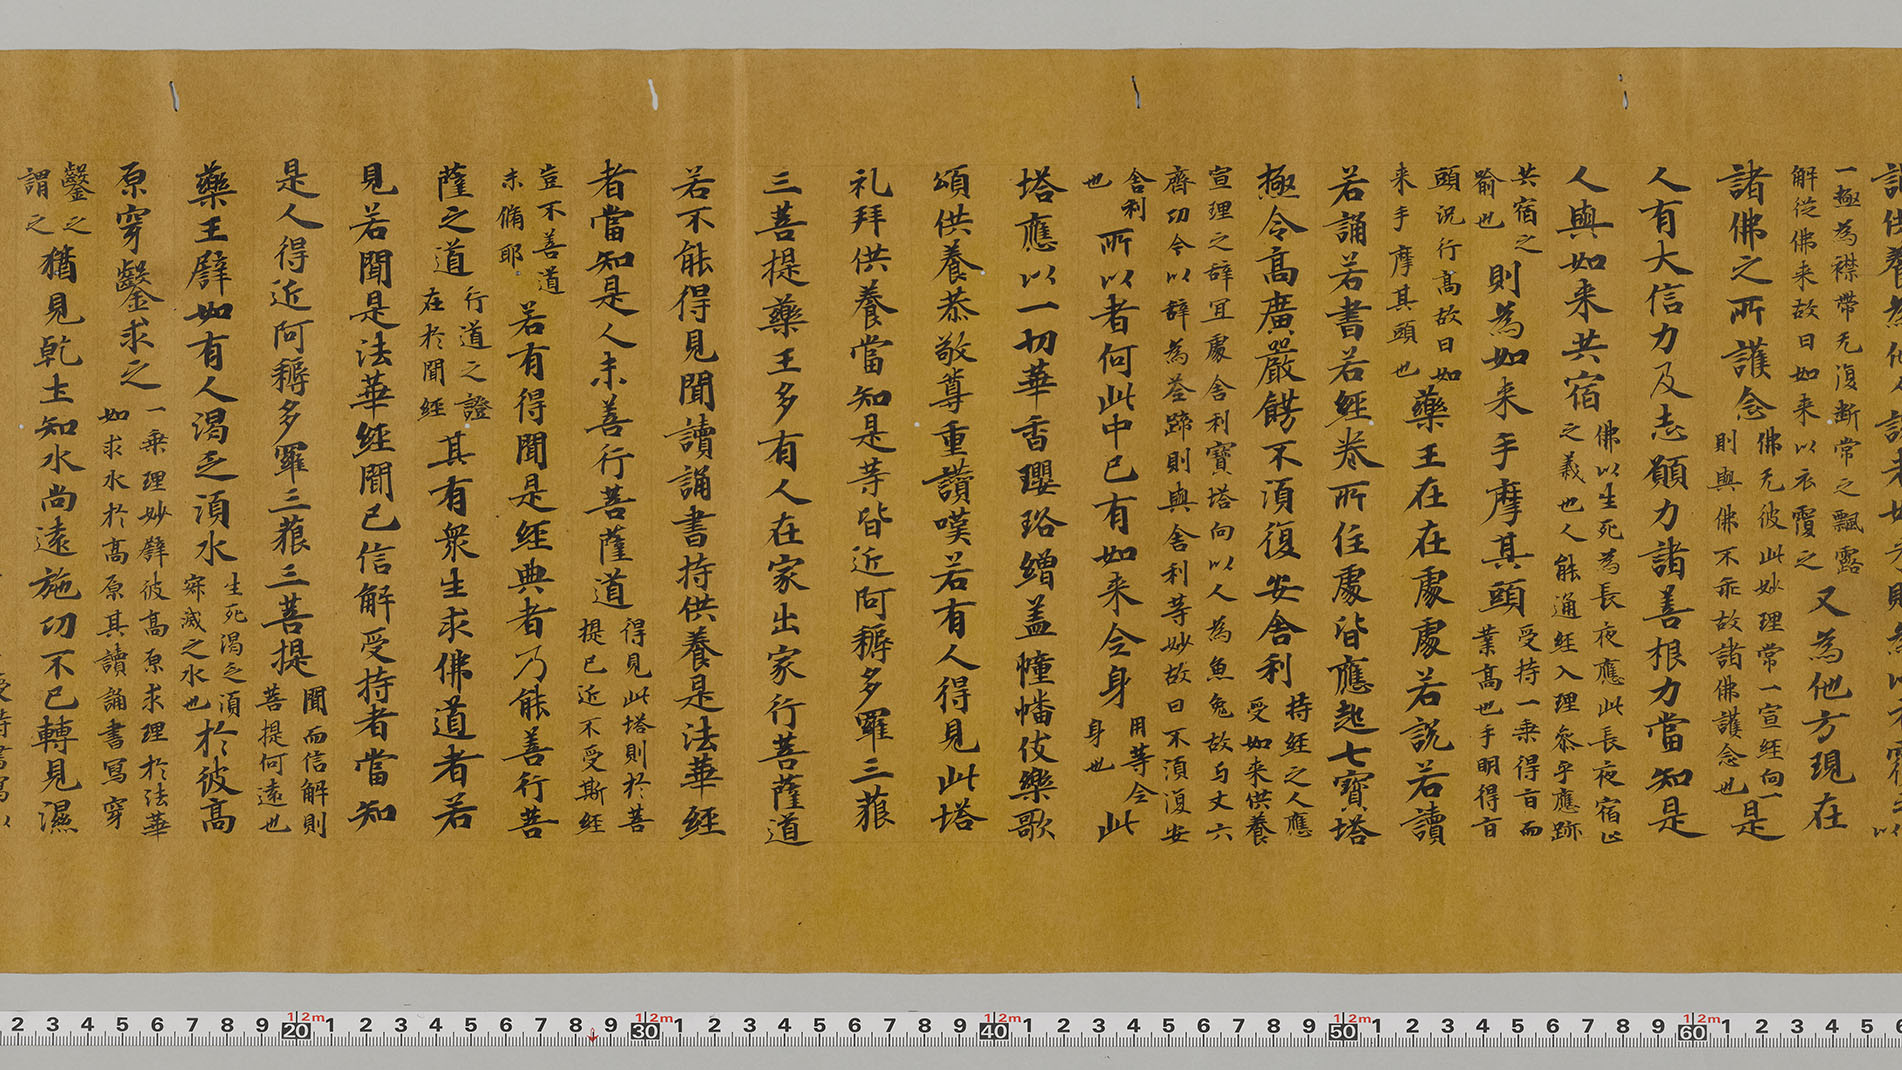 一極為襟帶无復斷常之飄露
解從佛来故曰如来以衣覆之
又為他方現在
諸佛之所護念
佛无彼此妙理常一宣經向一
則與佛不乖故諸佛護念也
是
人有大信力及志願力諸善根力當知是
人與如来共宿
佛以生死為長夜應此長夜宿止
之義也人能通經入理叅乎應跡
共宿之
喻也
則為如来手摩其頭
受持一乗得旨而
業髙也手明得旨
頭況行髙故曰如
来手摩其頭也
藥王在在處處若說若讀
若誦若書若經卷所住處皆應起七寶塔
極令髙廣嚴餝不湏復安舍利
持經之人應
受如来供養
宣理之辞宜處舍利寶塔向以人為魚兔故与丈六
齊功今以辞為荃蹄則與舍利等妙故曰不湏復安
舍利
也
所以者何此中已有如来全身
用等全
身也
此
塔應以一切華香瓔珞繒盖幢幡伎樂歌
頌供養恭敬尊重讚嘆若有人得見此塔
礼拜供養當知是等皆近阿耨多羅三藐
三菩提藥王多有人在家出家行菩薩道
若不能得見聞讀誦書持供養是法華經
者當知是人未善行菩薩道
得見此塔則於菩
提已近不受斯經
豈不善道
未脩耶
若有得聞是經典者乃能善行菩
薩之道
行道之證
在於聞經
其有衆生求佛道者若
見若聞是法華經聞已信解受持者當知
是人得近阿耨多羅三藐三菩提
聞而信解則
菩提何遠也
藥王譬如有人渴乏湏水
生死渴乏湏
寂滅之水也
於彼髙
原穿鑿求之
一乗理妙譬彼髙原求理於法華
如求水於髙原其讀誦書冩穿
鑿之
謂之
猶見乾土知水尚遠施功不已轉見濕